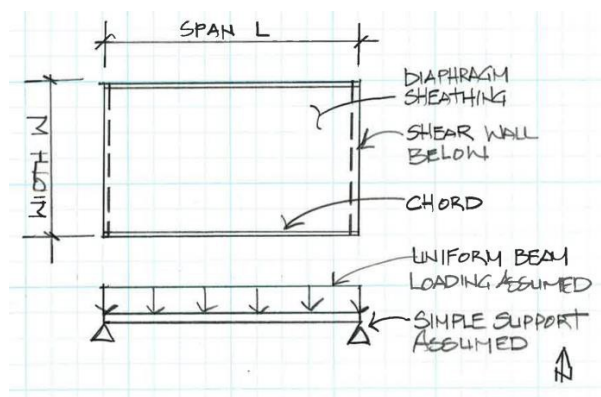 SPAN L
DIAPHRAGM
SHEATHING
SHEAR WALL
BELOW
WIDTH W
CHORD
UNIFORM BEAM
LOADING ASSUMED
SIMPLE SUPPORT
ASSUMED
N